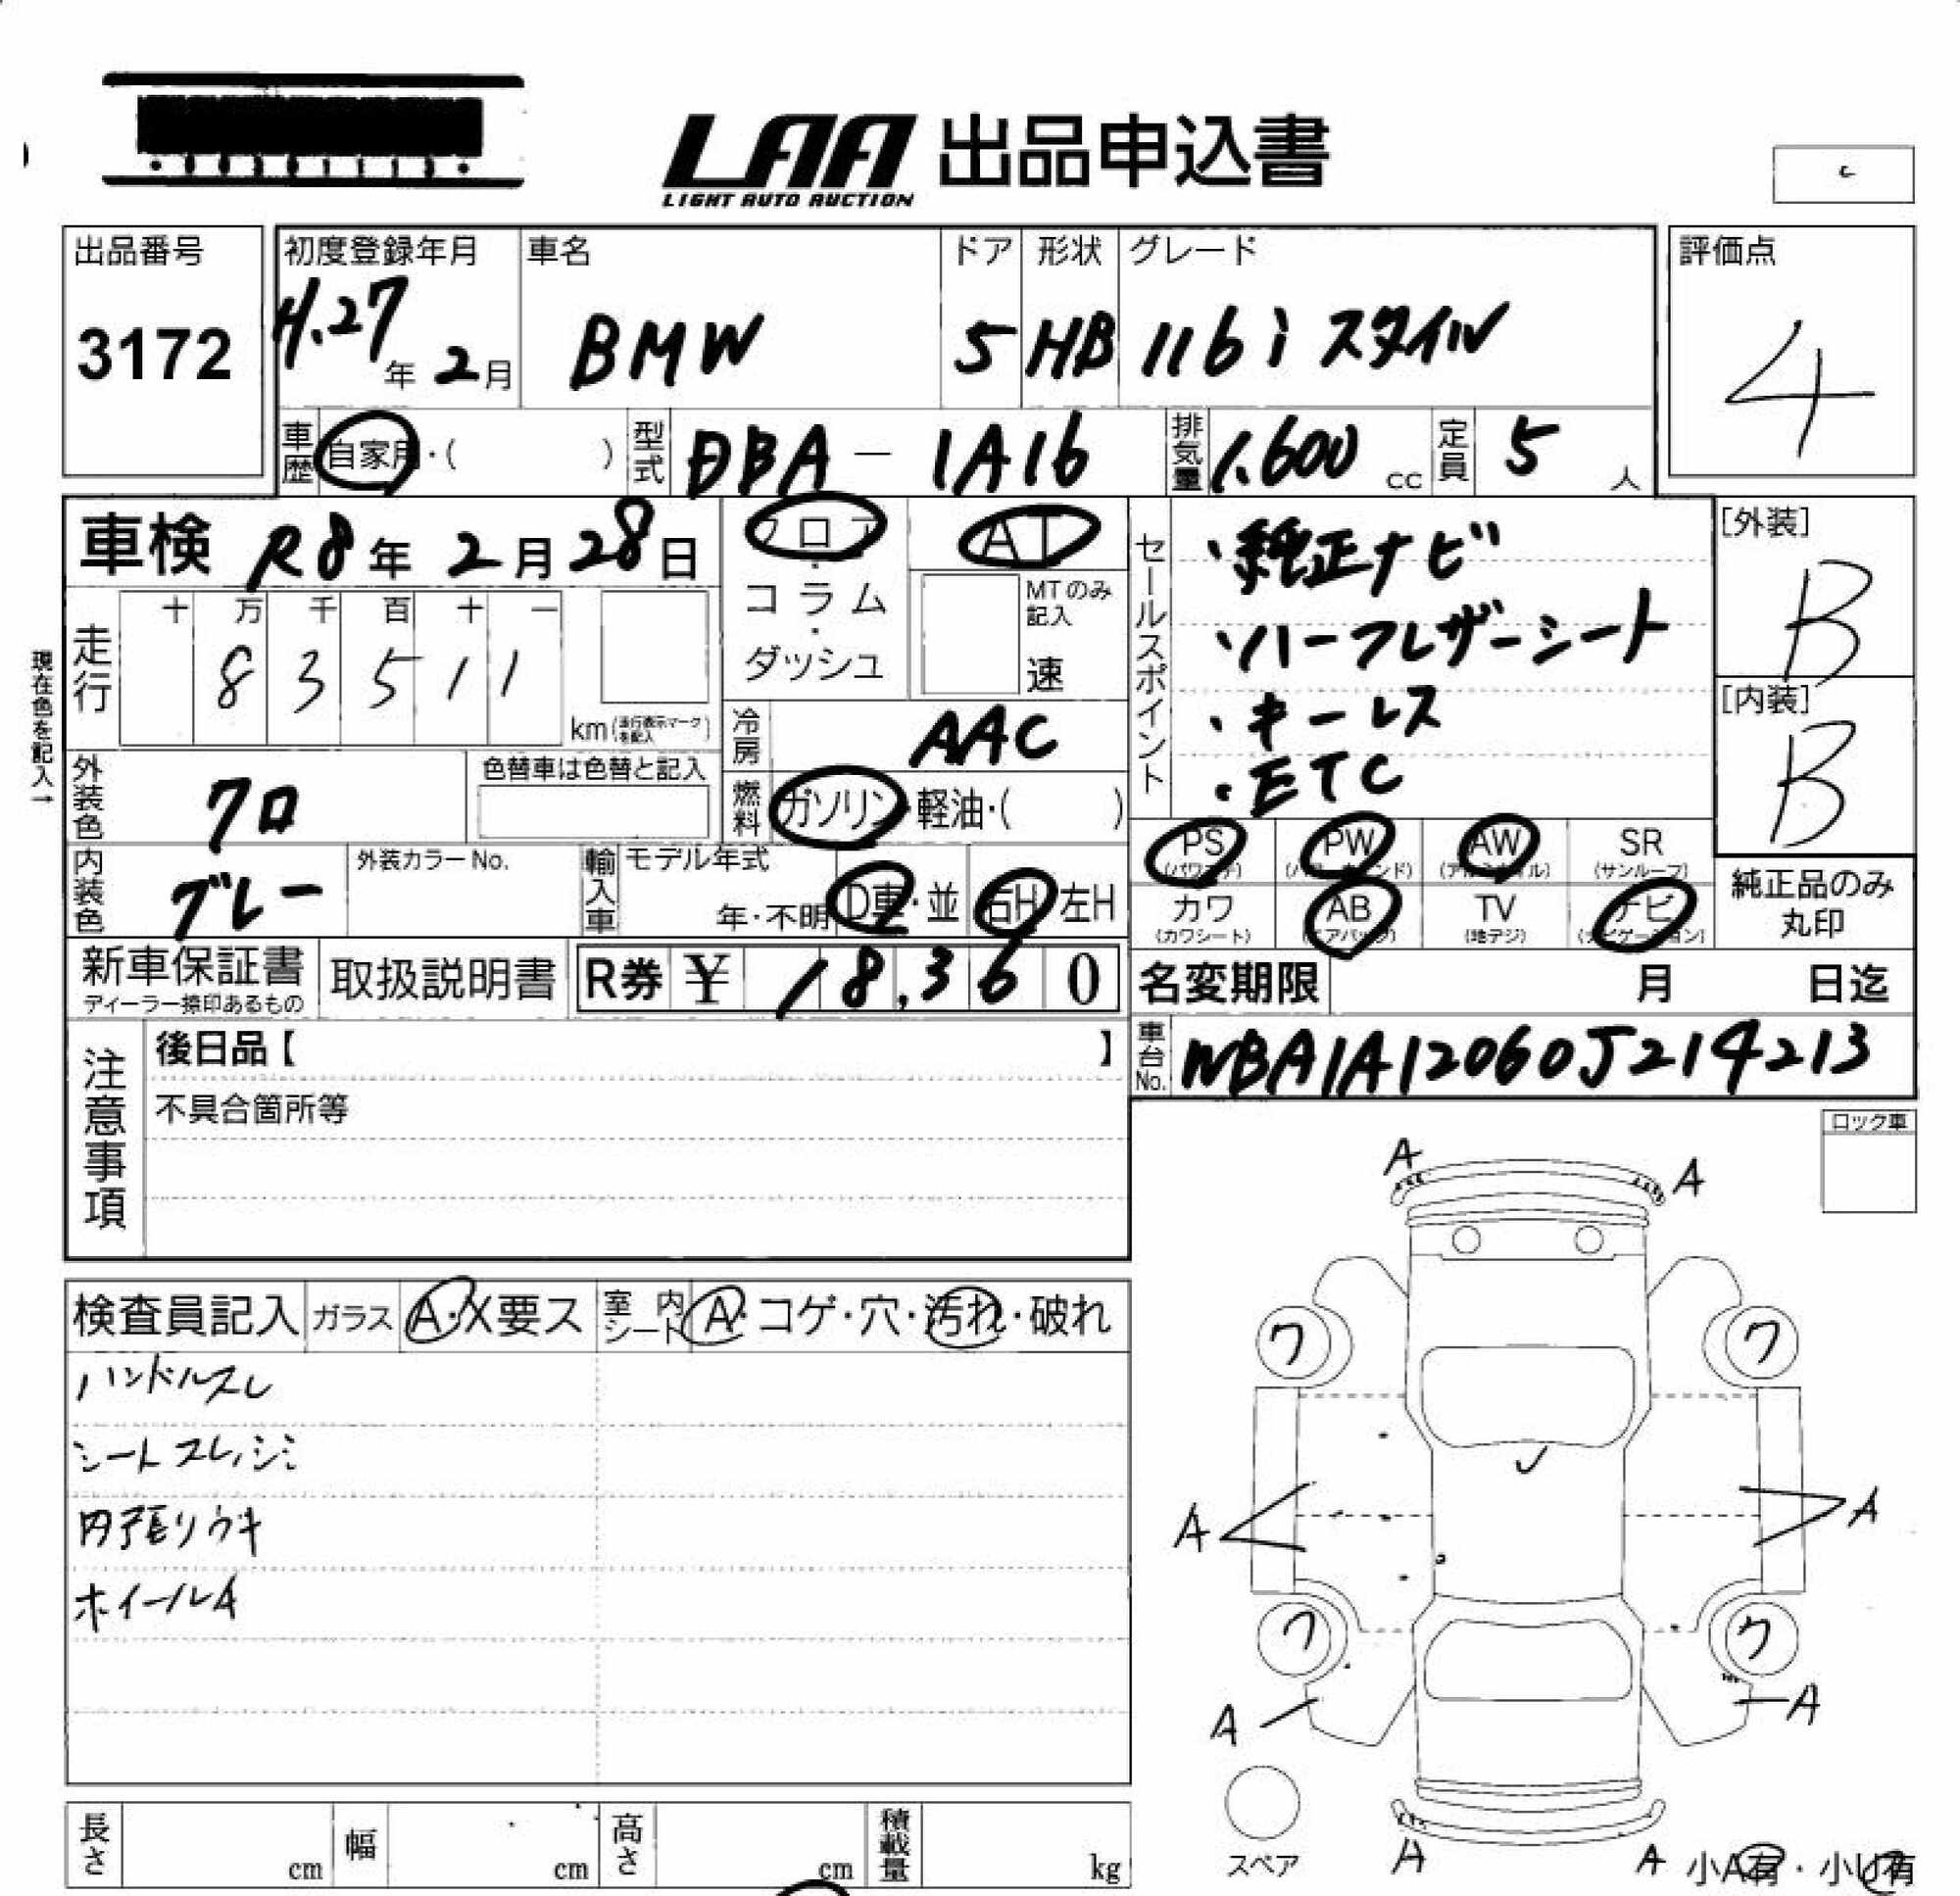 LAA 出品申込書
LIGHT AUTO AUCTION
出品番号
3172
初度登録年月
H.27年 2月
車名
BMW
ドア
5
形状
HB
グレード
116i スタイル
評価点
4
車歴 自家用・( )
型式 DBA－1A16
排気量 1.600 cc
定員 5 人
車検 R8年 2月 28日
フロア・コラム・ダッシュ
AT
MTのみ記入
速
セールスポイント
・純正ナビ
・ハーフレザーシート
・キーレス
・ETC
[外装]
B
[内装]
B
現在色を記入→
走行
十 万 千 百 十 一
8 3 5 1 1
km(走行表示マークを記入)
冷房 AAC
外装色 クロ
色替車は色替と記入
燃料 ガソリン・軽油・( )
内装色 グレー
外装カラーNo.
輸入車 モデル年式
年・不明 D車・並 右H 左H
PS (パワステ) PW (パワーウインド) AW (アルミホイル) SR (サンルーフ)
カワ (カワシート) AB (エアバック) TV (地デジ) ナビ (ナビゲーション)
純正品のみ丸印
新車保証書
ディーラー捺印あるもの
取扱説明書
R券 ¥ 18,360
名変期限 月 日迄
車台No. WBA1A12060J214213
注意事項
後日品【 】
不具合箇所等
ロック車
検査員記入 ガラス A・X要ス 室内シート A・コゲ・穴・汚れ・破れ
ハンドルスレ
シートスレ,シミ
内張リウキ
ホイールA
A A
ワ ワ
A A
ワ ワ
A A
スペア
A A
小A有・小U有
長さ cm 幅 cm 高さ cm 積載量 kg